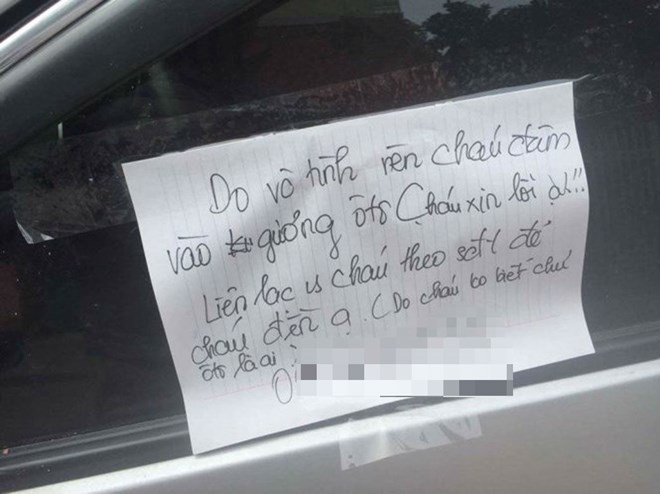 Do vô tình nên cháu đâm
vào gương ôtô Cháu xin lỗi ạ!!
Liên lạc vs cháu theo sđt để
cháu đền ạ. (Do cháu ko biết chủ
ôtô là ai)